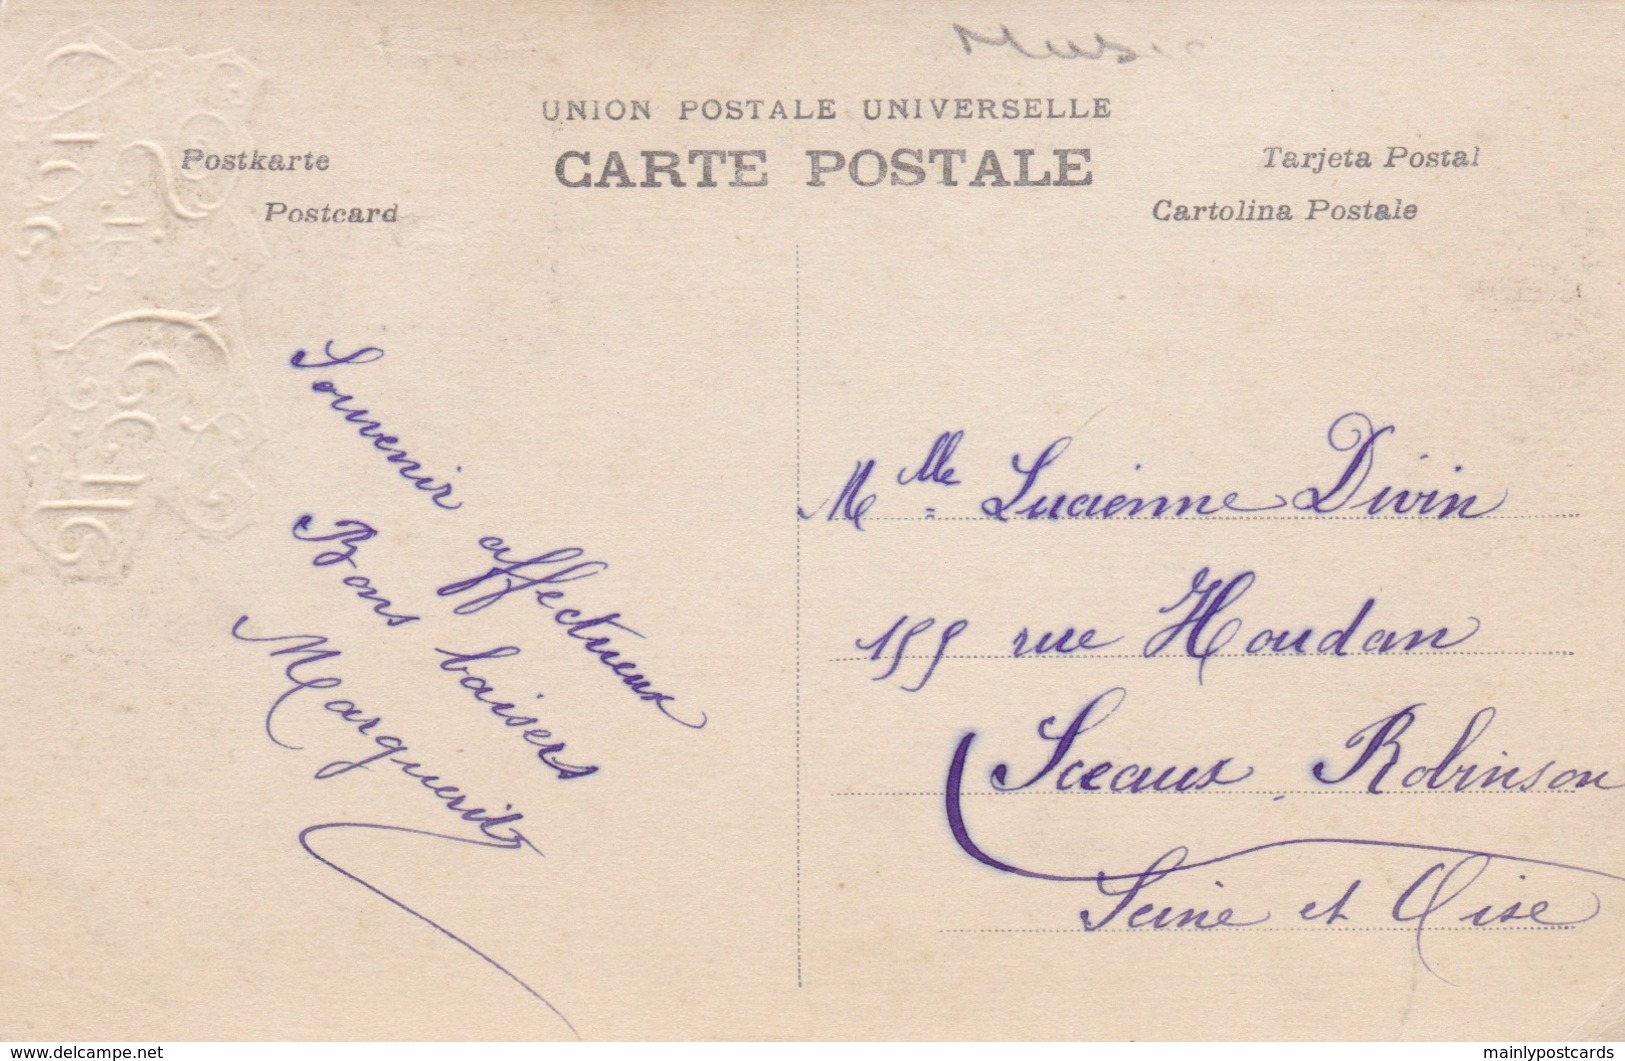 UNION POSTALE UNIVERSELLE
CARTE POSTALE
Postkarte
Postcard
Tarjeta Postal
Cartolina Postale
Souvenir affectueux
Bons baisers
Marguerite
Mlle Lucienne Divin
155 rue Houdan
Sceaux Robinson
Seine et Oise
www.delcampe.net
mainlypostcards